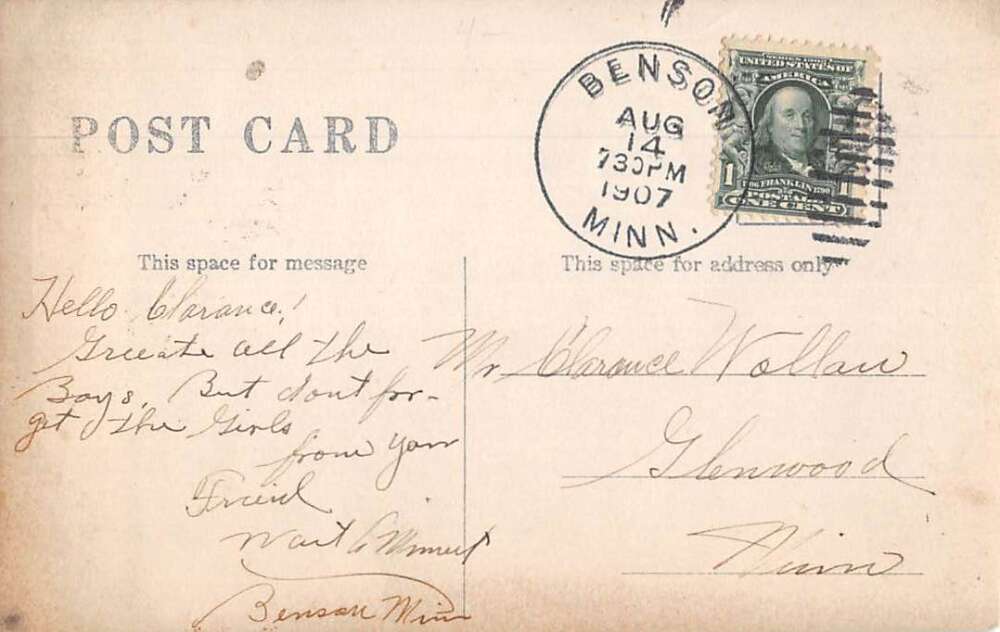 POST CARD
BENSON
AUG
14
730PM
1907
MINN.
SERIES 1902
UNITED STATES OF
AMERICA
1 FRANKLIN 1
POSTAGE
ONE CENT
This space for message
This space for address only
Hello Clarance!
Greeate all the
Boys, But dont for-
get the Girls
from your
Freind
Benson Minn
Mr Clarance Wollan
Glenwood
Minn